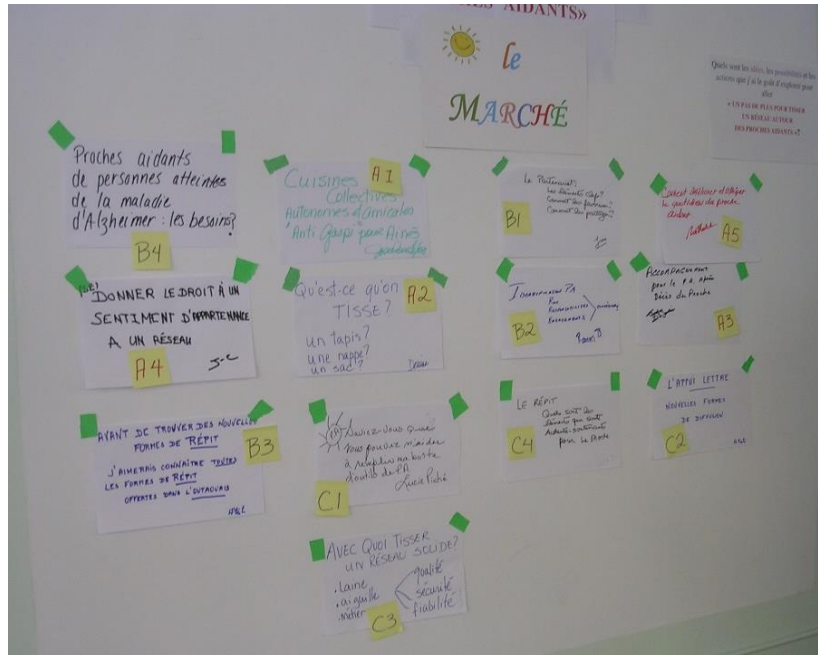 AIDANTS»
le
MARCHÉ
Quels sont les idées, les possibilités et les
actions que j'ai le goût d'explorer pour
aller
« UN PAS DE PLUS POUR TISSER
UN RÉSEAU AUTOUR
DES PROCHES AIDANTS »?
Proches aidants
de personnes atteintes
de la maladie
d'Alzheimer : les besoins?
B4
Cuisines
Collectives
Autonomes et amicales
"Anti Gaspi" pour Aînés
A1
Le Partenariat;
B1
le quotidien du proche
aidant
A5
DONNER LE DROIT À UN
SENTIMENT D'APPARTENANCE
A UN RÉSEAU
J-C
A4
Qu'est-ce qu'on
TISSE?
un tapis?
une nappe?
un sac?
A2
B2
ACCOMPAGNEMENT
pour le P.A. après
Décès du Proche
A3
AVANT DE TROUVER DES NOUVELLES
FORMES DE RÉPIT
J'AIMERAIS CONNAÎTRE TOUTES
LES FORMES DE RÉPIT
OFFERTES DANS L'OUTAOUAIS
B3
Saviez-vous que
vous pouvez m'aider
à remplir ma boîte
d'outils de PA
Lucie Piché
C1
LE RÉPIT
Quels sont les
pour le Proche
C4
L'APPUI LETTRE
NOUVELLES FORMES
DE DIFFUSION
C2
AVEC QUOI TISSER
UN RÉSEAU SOLIDE?
.laine qualité
.aiguille sécurité
.métier fiabilité
C3